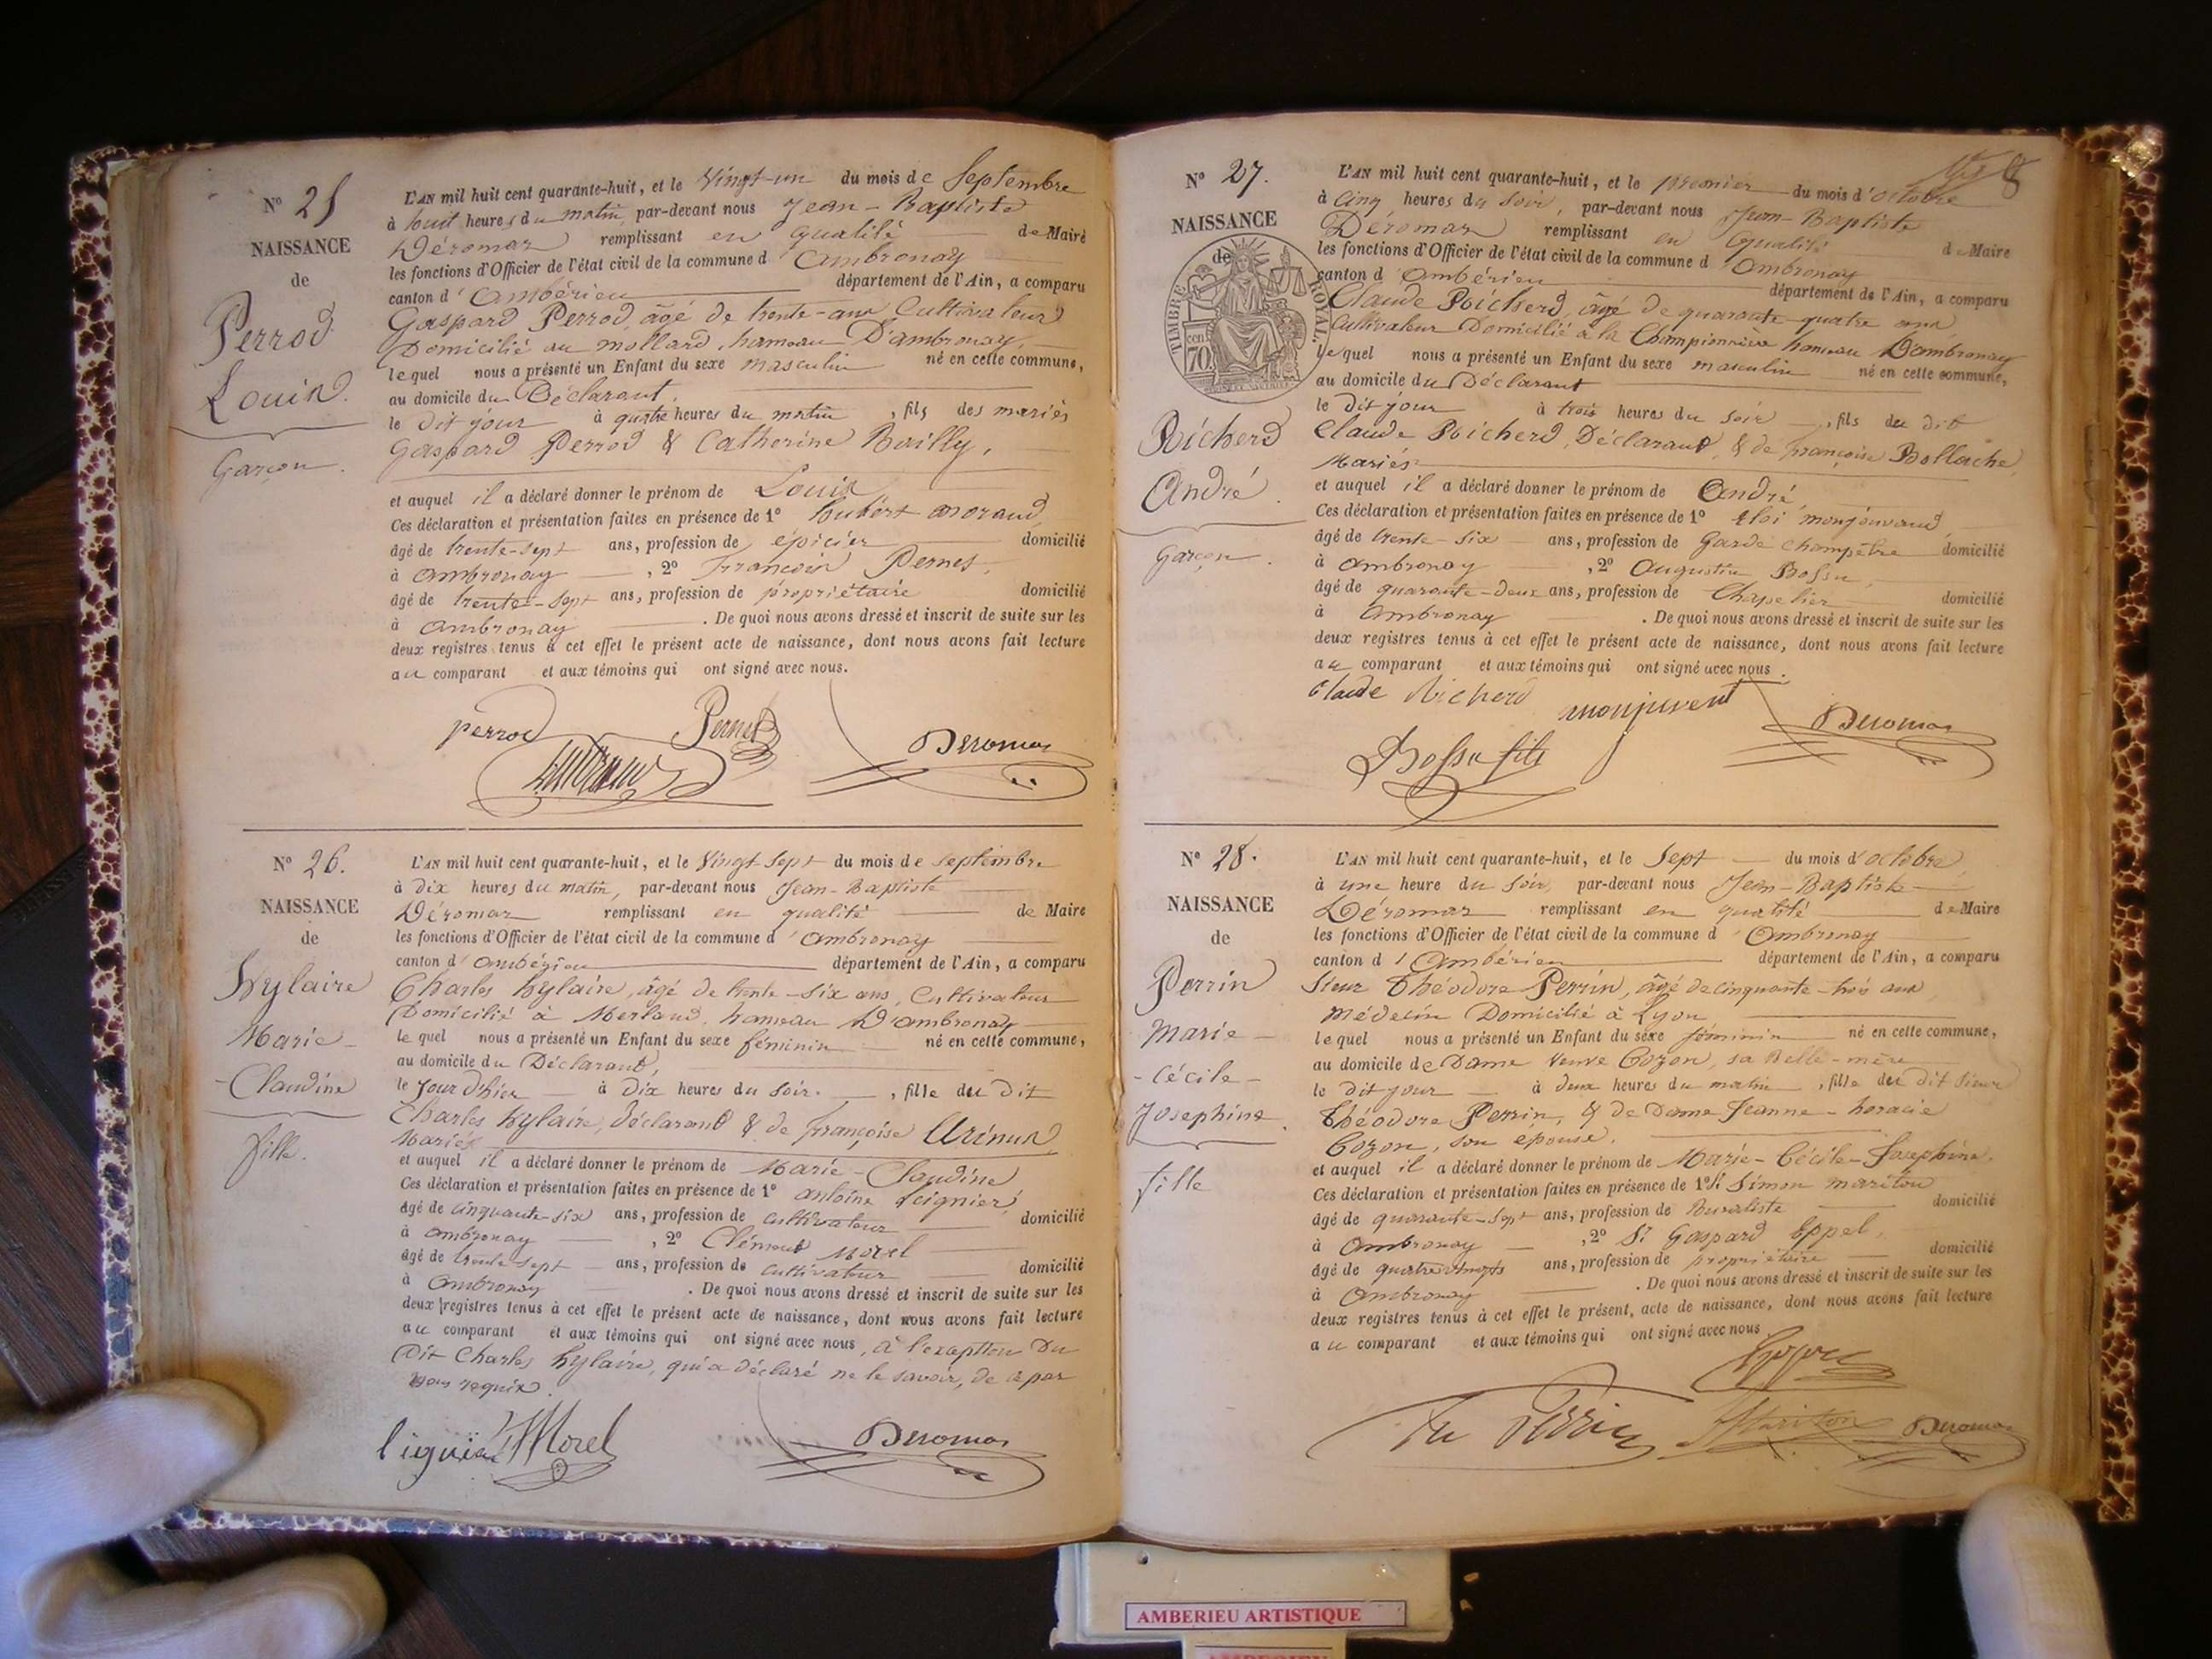 N° 25
NAISSANCE
de
Perrod
Louis.
Garçon.
L'AN mil huit cent quarante-huit, et le Vingt-un du mois de Septembre
à huit heures du matin, par-devant nous Jean-Baptiste
Déromas remplissant en qualité de Maire
les fonctions d'Officier de l'état civil de la commune d'Ambronay
canton d'Ambérieu département de l'Ain, a comparu
Gaspard Perrod, âgé de trente-ans Cultivateur
Domicilié au mollard, hameau D'ambronay,
lequel nous a présenté un Enfant du sexe masculin né en cette commune,
au domicile du Déclarant,
le dit jour à quatre heures du matin, fils des mariés
Gaspard Perrod & Catherine Bailly,
et auquel il a déclaré donner le prénom de Louis
Ces déclaration et présentation faites en présence de 1°
âgé de trente-sept ans, profession de épicier domicilié
à Ambronay, 2° François Pernet,
âgé de trente-sept ans, profession de propriétaire domicilié
à Ambronay. De quoi nous avons dressé et inscrit de suite sur les
deux registres tenus à cet effet le présent acte de naissance, dont nous avons fait lecture
au comparant et aux témoins qui ont signé avec nous.
perrod Pernet
Deromas
N° 26.
NAISSANCE
de
Hylaire
Marie-
-Claudine
fille.
L'AN mil huit cent quarante-huit, et le Vingt Sept du mois de septembre
à Dix heures du matin, par-devant nous Jean-Baptiste
Déromas remplissant en qualité de Maire
les fonctions d'Officier de l'état civil de la commune d'Ambronay
canton d'Ambérieu département de l'Ain, a comparu
Charles Hylaire, âgé de trente-six ans, Cultivateur
Domicilié à Merland, hameau D'ambronay
lequel nous a présenté un Enfant du sexe féminin né en cette commune,
au domicile du Déclarant,
le Jour d'hier à Dix heures du soir, fille du Dit
Charles Hylaire, Déclarant & de françoise
Mariés
et auquel il a déclaré donner le prénom de Marie-Claudine
Ces déclaration et présentation faites en présence de 1° antoine
âgé de cinquante-six ans, profession de cultivateur domicilié
à Ambronay, 2° Clément Morel
âgé de trente sept ans, profession de cultivateur domicilié
à Ambronay. De quoi nous avons dressé et inscrit de suite sur les
deux registres tenus à cet effet le présent acte de naissance, dont nous avons fait lecture
au comparant et aux témoins qui ont signé avec nous, à l'exception Du
Dit Charles hylaire, qui a déclaré ne le savoir, de ce par
nous requis.
Morel Deromas
N° 27.
NAISSANCE
de
TIMBRE ROYAL
70
Richerd
André.
Garçon.
8
L'AN mil huit cent quarante-huit, et le premier du mois d'octobre
à Cinq heures du Soir, par-devant nous Jean-Baptiste
Déromas remplissant en qualité de Maire
les fonctions d'Officier de l'état civil de la commune d'Ambronay
canton d'Ambérieu département de l'Ain, a comparu
Claude Richerd, âgé de quarante-quatre ans
Cultivateur Domicilié à la Championnière hameau D'ambronay
lequel nous a présenté un Enfant du sexe masculin né en cette commune,
au domicile du Déclarant
le Dit jour à trois heures du Soir, fils du dit
Claude Richerd, Déclarant, & de françoise Bollache,
Mariés
et auquel il a déclaré donner le prénom de André
Ces déclaration et présentation faites en présence de 1° Eloi
âgé de trente-six ans, profession de Garde Champêtre domicilié
à Ambronay, 2° Augustin Bossu,
âgé de quarante-deux ans, profession de Chapelier domicilié
à Ambronay. De quoi nous avons dressé et inscrit de suite sur les
deux registres tenus à cet effet le présent acte de naissance, dont nous avons fait lecture
au comparant et aux témoins qui ont signé avec nous.
Claude Richerd Deromas
Bossu fils
N° 28.
NAISSANCE
de
Perrin
Marie-
-Cécile-
Josephine.
fille
L'AN mil huit cent quarante-huit, et le Sept du mois d'octobre
à une heure du Soir, par-devant nous Jean-Baptiste
Déromas remplissant en qualité de Maire
les fonctions d'Officier de l'état civil de la commune d'Ambronay
canton d'Ambérieu département de l'Ain, a comparu
Sieur Théodore Perrin, âgé de cinquante-trois ans
Médecin Domicilié à Lyon
lequel nous a présenté un Enfant du sexe féminin né en cette commune,
au domicile de Dame Veuve Cozon, sa Belle-mère
le dit jour à deux heures du matin, fille du dit Sieur
Théodore Perrin, & de Dame Jeanne-horacie
Cozon, son épouse.
et auquel il a déclaré donner le prénom de Marie-Cécile-Josephine.
Ces déclaration et présentation faites en présence de 1° Sr Simon mariton
âgé de quarante-sept ans, profession de Buraliste domicilié
à Ambronay, 2° Sr Gaspard Eppel,
âgé de quatrevingts ans, profession de propriétaire domicilié
à Ambronay. De quoi nous avons dressé et inscrit de suite sur les
deux registres tenus à cet effet le présent acte de naissance, dont nous avons fait lecture
au comparant et aux témoins qui ont signé avec nous
Th Perrin Mariton Deromas
AMBERIEU ARTISTIQUE